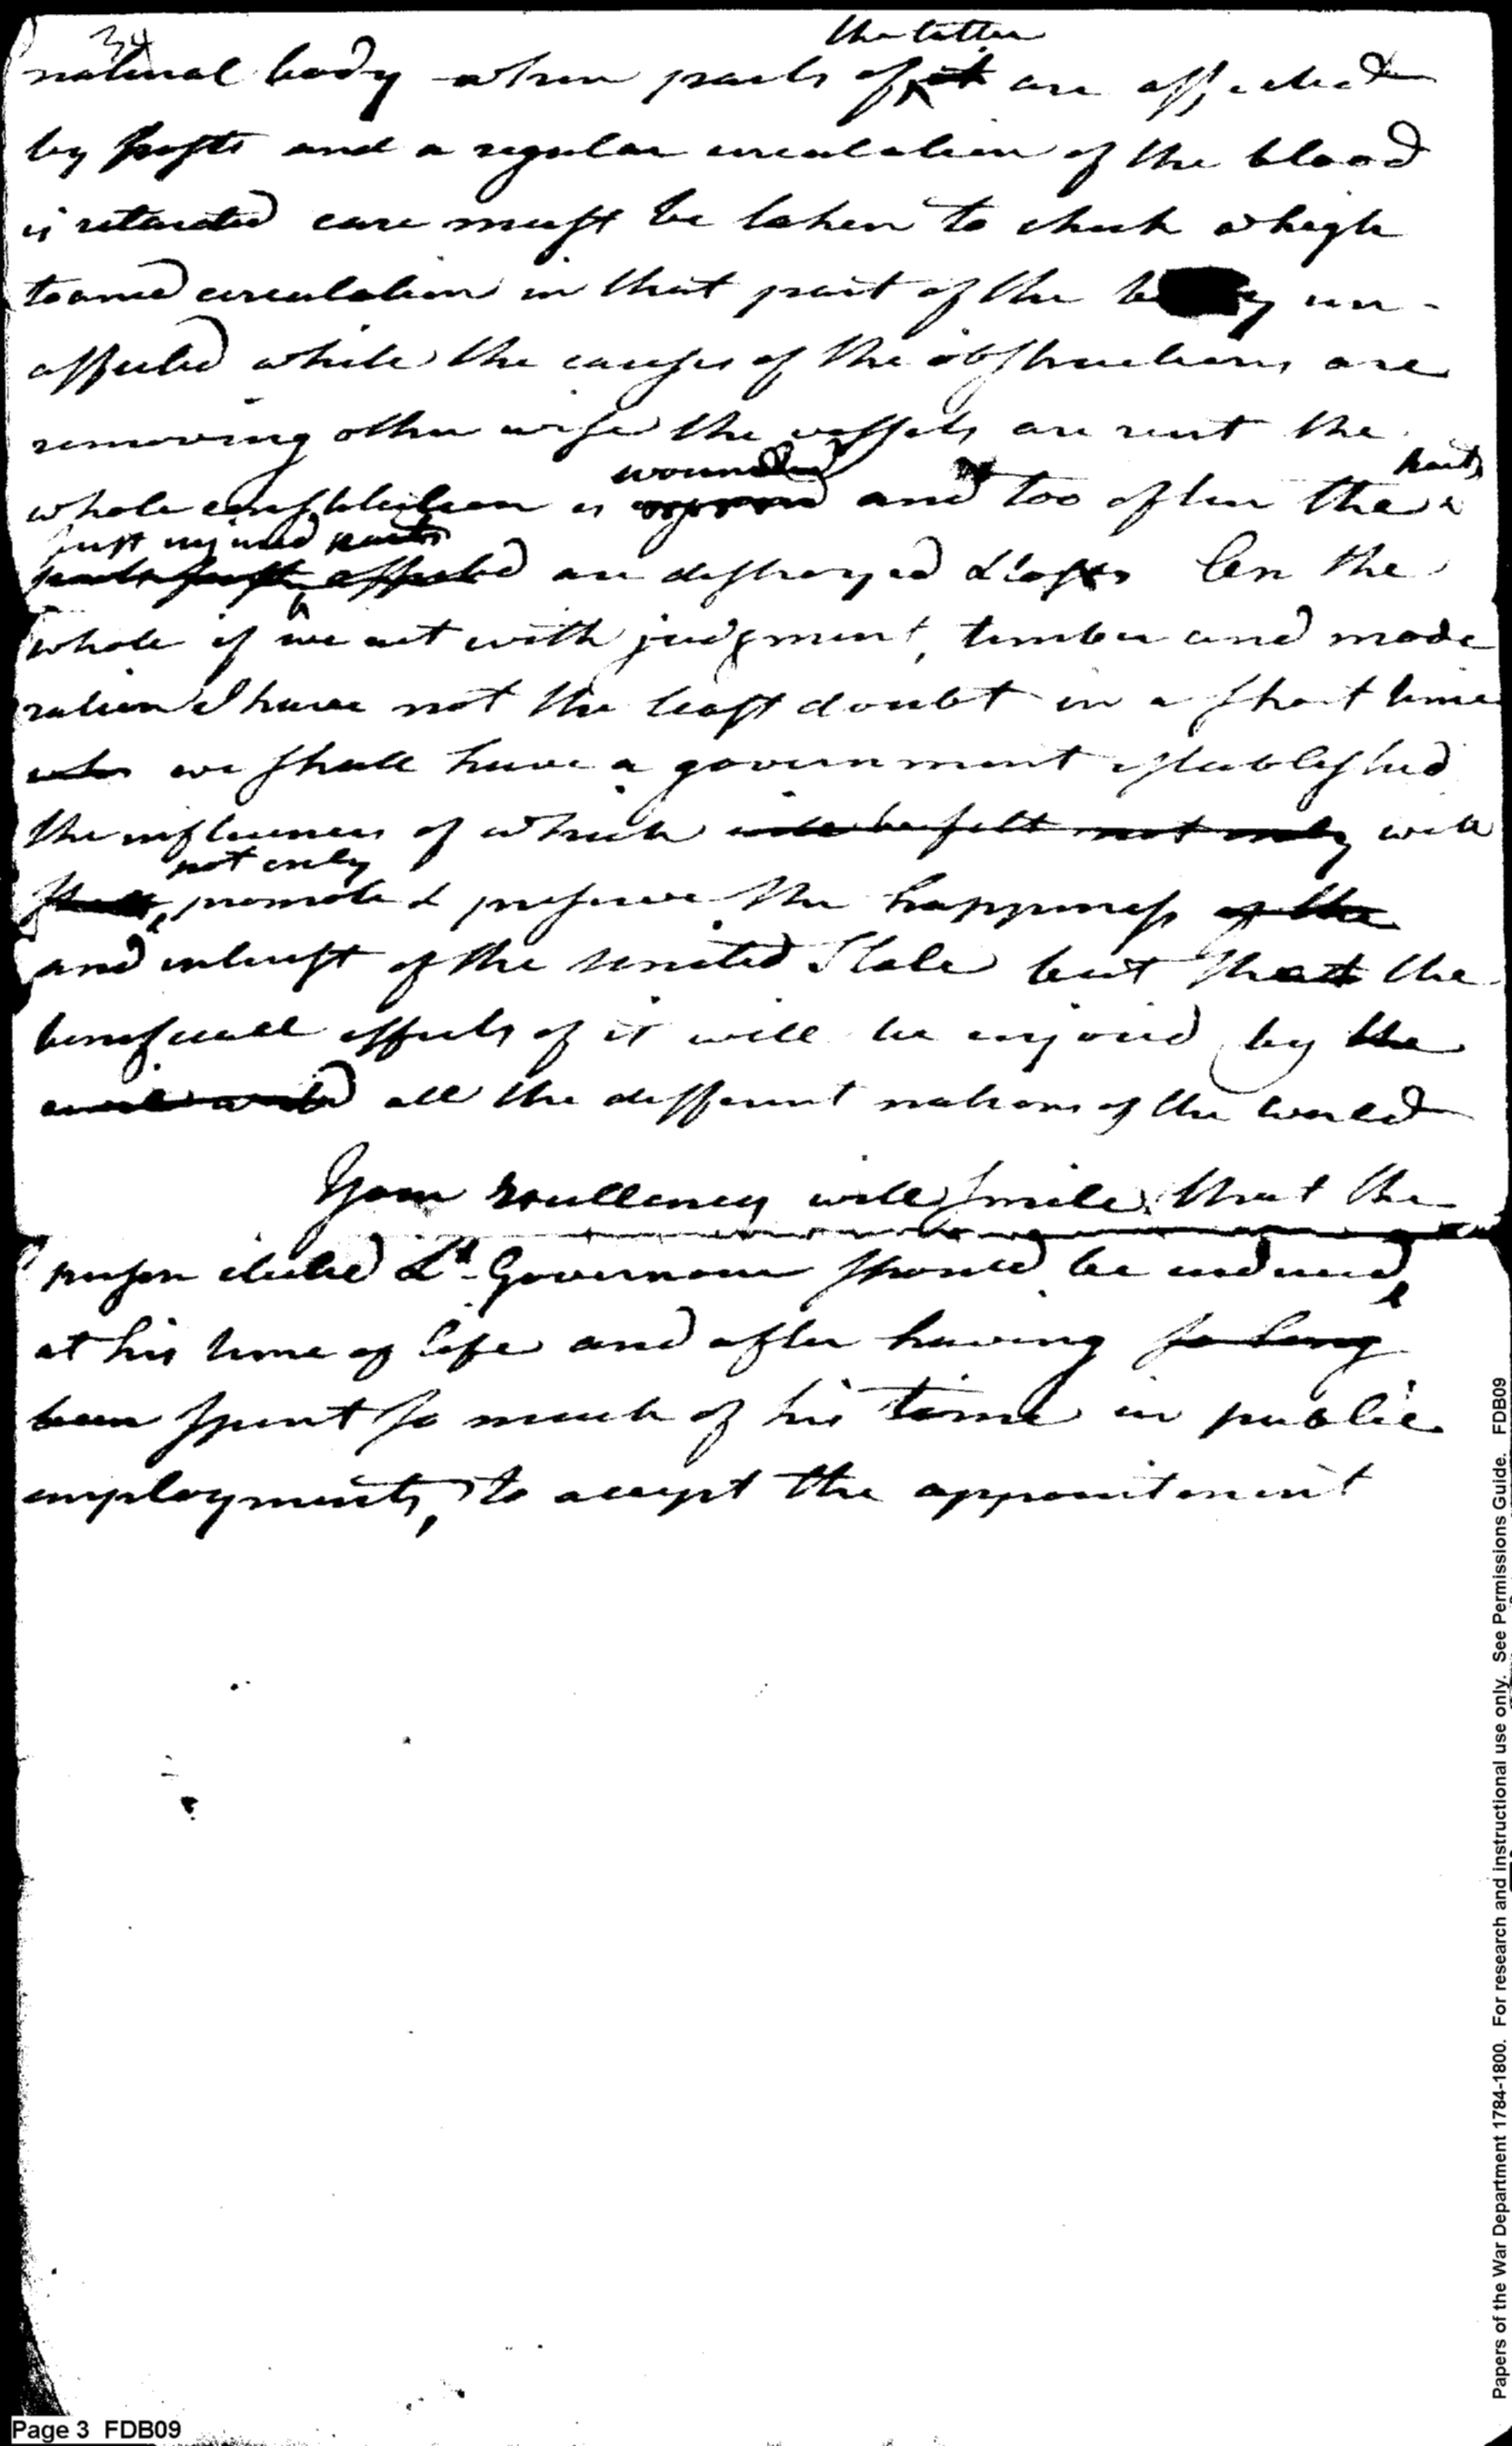 34
the latter
natural body when parts of it are affected
by frosts and a regular circulation of the blood
is retarded care must be taken to check a high
toaned circulation in that part of the body un-
affected while the causes of the obstructions are
removing other wise the vessels are rent the
wounded parts
whole constitution is and too often the
first injured parts
parts first affected are destroyed & lost On the
whole if we act with judgment, tember and mode
ration I have not the least doubt in a short time
we shall have a government established
the influences of which will be felt not only will
not only
shall promote & preserve the happiness of the
and interest of the United State but that the
beneficiall effects of it will be enjoied by the
all the different nations of the world
Your Excellency will smile that the
person elected Lt. Governour should be induced
at his time of life and after having so long
been spent so much of his time in public
employments, to accept the appointment
Page 3 FDB09
Papers of the War Department 1784-1800. For research and instructional use only. See Permissions Guide. FDB09